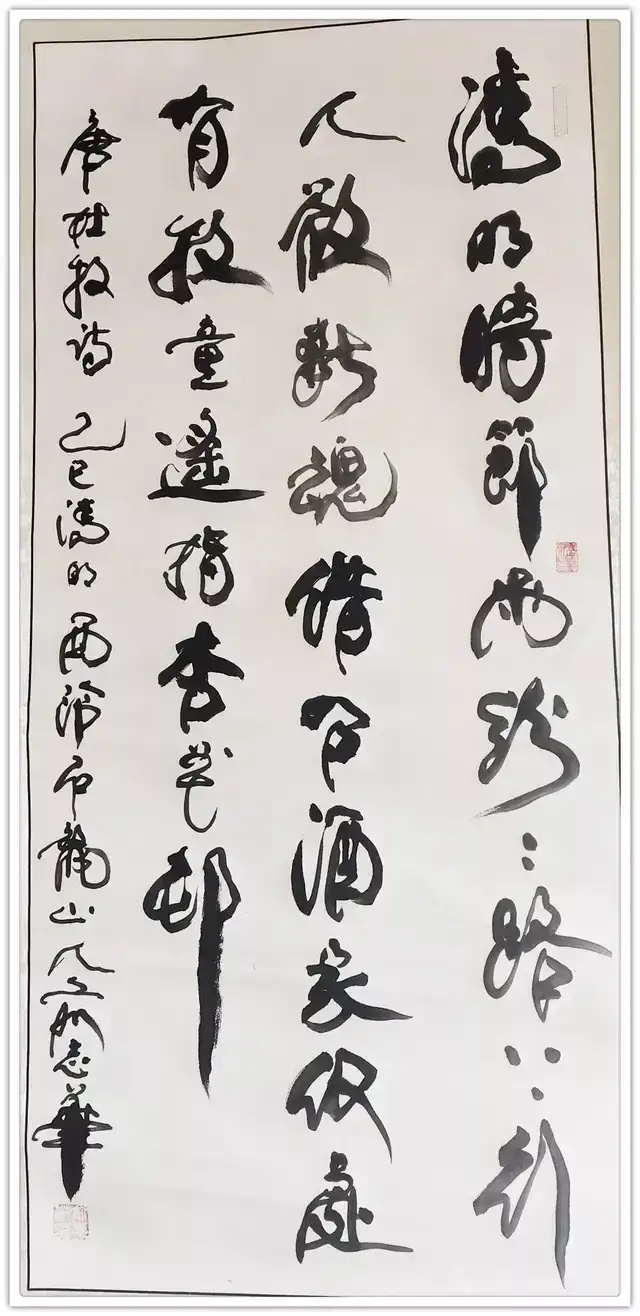 清明時節雨紛〻路上行
人欲斷魂借問酒家何處
有牧童遙指杏花邨
唐杜牧詩 乙巳清明 龍山人 志華